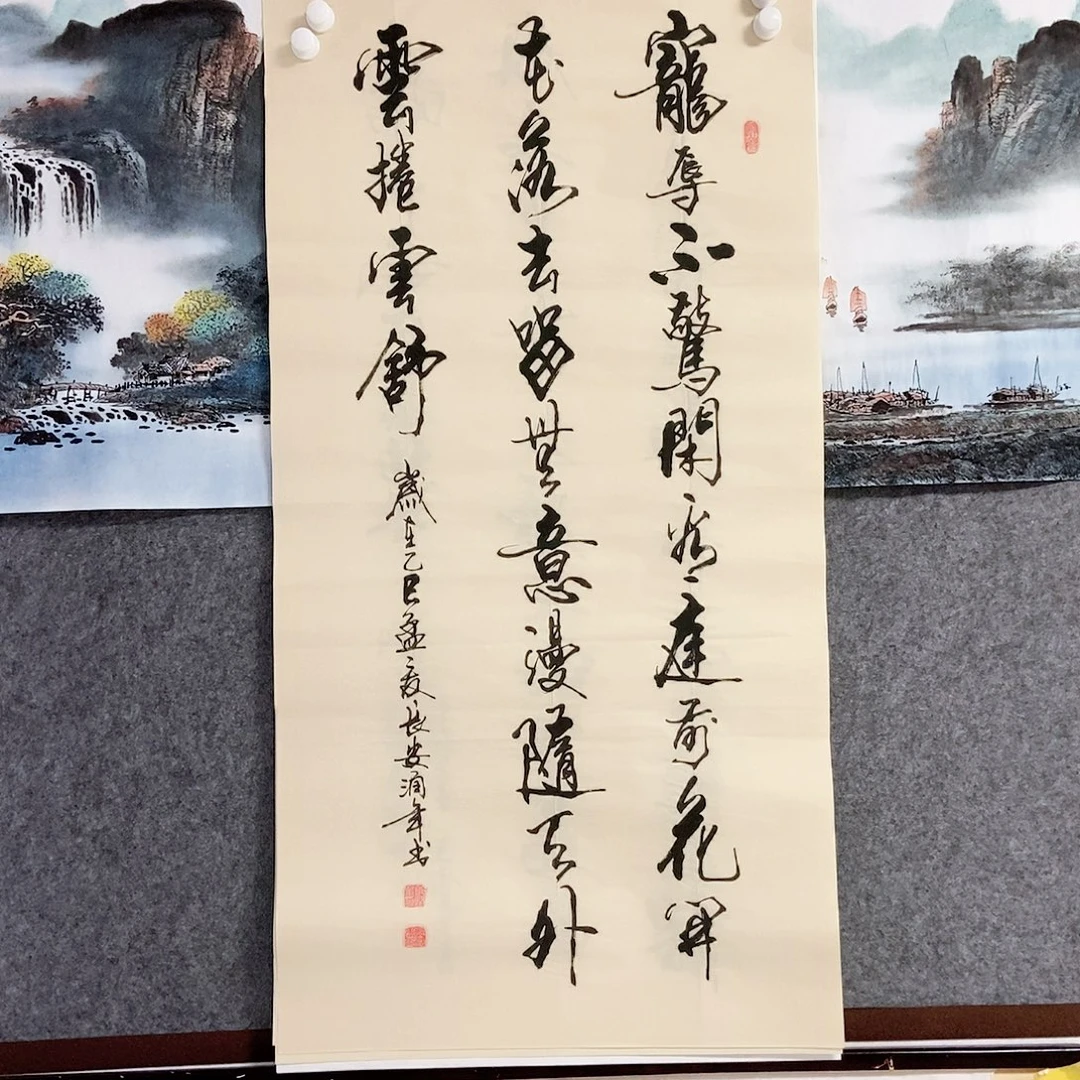 寵辱不驚閑看庭前花開
花落去留無意漫隨天外
雲捲雲舒
歲在乙巳孟夏長安年书